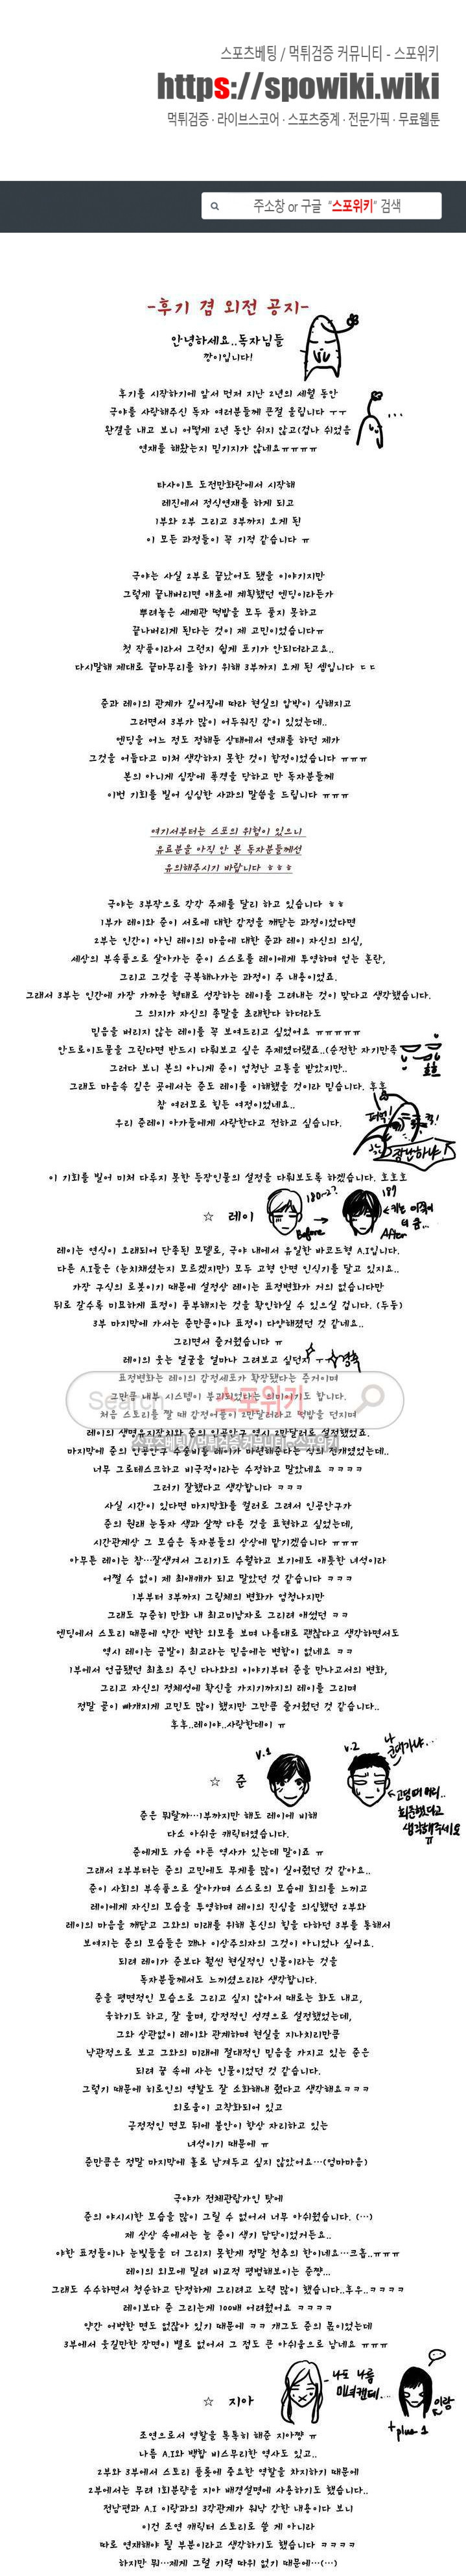 스포츠베팅 / 먹튀검증 커뮤니티 - 스포위키
https://spowiki.wiki
먹튀검증 · 라이브스코어 · 스포츠중계 · 전문가픽 · 무료웹툰
주소창 or 구글 "스포위키" 검색
-후기 겸 외전 공지-
안녕하세요..독자님들
깡이입니다!
후기를 시작하기에 앞서 먼저 지난 2년의 세월 동안
극야를 사랑해주신 독자 여러분들께 큰절 올립니다 ㅜㅜ
완결을 내고 보니 어떻게 2년 동안 쉬지 않고(겁나 쉬었음
연재를 해왔는지 믿기지가 않네요ㅠㅠㅠㅠ
타사이트 도전만화란에서 시작해
레진에서 정식연재를 하게 되고
1부와 2부 그리고 3부까지 오게 된
이 모든 과정들이 꼭 기적 같습니다 ㅠ
극야는 사실 2부로 끝났어도 됐을 이야기지만
그렇게 끝내버리면 애초에 계획했던 엔딩이라든가
뿌려놓은 세계관 떡밥을 모두 풀지 못하고
끝나버리게 된다는 것이 제 고민이었습니다ㅠ
첫 작품이라서 그런지 쉽게 포기가 안되더라고요..
다시말해 제대로 끝마무리를 하기 위해 3부까지 오게 된 셈입니다 ㄷㄷ
준과 레이의 관계가 깊어짐에 따라 현실의 압박이 심해지고
그러면서 3부가 많이 어두워진 감이 있었는데..
엔딩을 어느 정도 정해둔 상태에서 연재를 하던 제가
그것을 어둡다고 미처 생각하지 못한 것이 함정이었습니다 ㅠㅠㅠ
본의 아니게 심장에 폭격을 당하고 만 독자분들께
이번 기회를 빌어 심심한 사과의 말씀을 드립니다 ㅠㅠㅠ
여기서부터는 스포의 위험이 있으니
유료분을 아직 안 본 독자분들께선
유의해주시기 바랍니다 ㅎㅎㅎ
극야는 3부작으로 각각 주제를 달리 하고 있습니다 ㅎㅎ
1부가 레이와 준이 서로에 대한 감정을 깨닫는 과정이었다면
2부는 인간이 아닌 레이의 마음에 대한 준과 레이 자신의 의심,
세상의 부속품으로 살아가는 준이 스스로를 레이에게 투영하며 얻는 혼란,
그리고 그것을 극복해나가는 과정이 주 내용이었죠.
그래서 3부는 인간에 가장 가까운 형태로 성장하는 레이를 그려내는 것이 맞다고 생각했습니다.
그 의지가 자신의 종말을 초래한다 하더라도
믿음을 버리지 않는 레이를 꼭 보여드리고 싶었어요 ㅠㅠㅠㅠㅠ
안드로이드물을 그린다면 반드시 다뤄보고 싶은 주제였더랬죠..(순전한 자기만족
그러다 보니 본의 아니게 준이 엄청난 고통을 받았지만..
그래도 마음속 깊은 곳에서는 준도 레이를 이해했을 것이라 믿습니다. 후훗
참 여러모로 힘든 여정이었네요..
우리 준레이 아가들에게 사랑한다고 전하고 싶습니다.
이 기회를 빌어 미처 다루지 못한 등장인물의 설정을 다뤄보도록 하겠습니다. 호호호
☆ 레이
Before
After
레이는 연식이 오래되어 단종된 모델로, 극야 내에서 유일한 바코드형 A.I입니다.
다른 A.I들은 (눈치채셨는지 모르겠지만) 모두 고형 안면 인식기를 달고 있지요..
가장 구식의 로봇이기 때문에 설정상 레이는 표정변화가 거의 없습니다만
뒤로 갈수록 미묘하게 표정이 풍부해지는 것을 확인하실 수 있으실 겁니다. (두둥)
3부 마지막에 가서는 준만큼이나 표정이 다양해졌던 것 같네요..
그리면서 즐거웠습니다 ㅠ
레이의 웃는 얼굴을 얼마나 그려보고 싶던지 ㅜㅜ
표정변화는 레이의 감정세포가 확장됐다는 증거이며
그만큼 내부 시스템이 붕괴되었다는 의미이기도 합니다.
Search 스포위키
처음 스토리를 짤 때 감정여들이 2만달러라고 떡밥을 던지며
레이의 생명유지장치와 준의 인공안구 역시 2만달러로 설정했었죠.
스포츠베팅 / 먹튀검증 커뮤니티 - 스포위키
마지막에 준의 인공안구 수술비를 레이가 마련해준다는 식의 전개였었는데..
너무 그로테스크하고 비극적이라는 수정하고 말았네요 ㅋㅋㅋㅋ
그러기 잘했다고 생각합니다 ㅋㅋㅋ
사실 시간이 있다면 마지막화를 컬러로 그려서 인공안구가
준의 원래 눈동자 색과 살짝 다른 것을 표현하고 싶었는데,
시간관계상 그 모습은 독자분들의 상상에 맡기겠습니다 ㅠㅠㅠ
아무튼 레이는 참…잘생겨서 그리기도 수월하고 보기에도 애틋한 녀석이라
어쩔 수 없이 제 최애캐가 되고 말았던 것 같습니다 ㅋㅋㅋ
1부부터 3부까지 그림체의 변화가 엄청나지만
그래도 꾸준히 만화 내 최고미남자로 그리려 애썼던 ㅋㅋ
엔딩에서 스토리 때문에 약간 변한 외모를 보며 나름대로 괜찮다고 생각하면서도
역시 레이는 금발이 최고라는 믿음에는 변함이 없네요 ㅋㅋ
1부에서 언급됐던 최초의 주인 다나와의 이야기부터 준을 만나고서의 변화,
그리고 자신의 정체성에 확신을 가지기까지의 레이를 그리며
정말 골이 빠개지게 고민도 많이 했지만 그만큼 즐거웠던 것 같습니다..
후후..레이야..사랑한데이 ㅠ
☆ 준
v.1
v.2
준은 뭐랄까…1부까지만 해도 레이에 비해
다소 아쉬운 캐릭터였습니다.
준에게도 가슴 아픈 역사가 있는데 말이죠 ㅠ
그래서 2부부터는 준의 고민에도 무게를 많이 실어줬던 것 같아요..
준이 사회의 부속품으로 살아가며 스스로의 모습에 회의를 느끼고
레이에게 자신의 모습을 투영하며 레이의 진심을 의심했던 2부와
레이의 마음을 깨닫고 그와의 미래를 위해 혼신의 힘을 다하던 3부를 통해서
보여지는 준의 모습들은 꽤나 이상주의자의 그것이 아니었나 싶어요.
되려 레이가 준보다 훨씬 현실적인 인물이라는 것을
독자분들께서도 느끼셨으리라 생각합니다.
준을 평면적인 모습으로 그리고 싶지 않아서 때로는 화도 내고,
욱하기도 하고, 잘 울며, 감정적인 성격으로 설정했었는데,
그와 상관없이 레이와 관계하며 현실을 지나치리만큼
낙관적으로 보고 그와의 미래에 절대적인 믿음을 가지고 있는 준은
되려 꿈 속에 사는 인물이었던 것 같습니다.
그렇기 때문에 히로인의 역할도 잘 소화해내 줬다고 생각해요ㅋㅋㅋ
외로움이 고착화되어 있고
긍정적인 면모 뒤에 불안이 항상 자리하고 있는
녀석이기 때문에 ㅠ
준만큼은 정말 마지막에 홀로 남겨두고 싶지 않았어요…(엄마마음)
극야가 전체관람가인 탓에
준의 야시시한 모습을 많이 그릴 수 없어서 너무 아쉬웠습니다. (…)
제 상상 속에서는 늘 준이 색기 담당이었거든요..
야한 표정들이나 눈빛들을 더 그리지 못한게 정말 천추의 한이네요…크흡..ㅠㅠㅠ
레이의 외모에 밀려 비교적 평범해보이는 준쨩...
그래도 수수하면서 청순하고 단정하게 그리려고 노력 많이 했습니다..후우..ㅋㅋㅋㅋ
레이보다 준 그리는게 100배 어려웠어요 ㅋㅋㅋㅋ
약간 어벙한 면도 없잖아 있기 때문에 ㅋㅋ 개그도 준의 몫이었는데
3부에서 웃길만한 장면이 별로 없어서 그 점도 큰 아쉬움으로 남네요 ㅠㅠㅠ
☆ 지아
나도 나름
미녀캔데...
이랑
+plus 1
조연으로서 역할을 톡톡히 해준 지아쨩 ㅠ
나름 A.I와 백합 비스무리한 역사도 있고..
2부와 3부에서 스토리 플롯에 중요한 역할을 차지하기 때문에
2부에서는 무려 1회분량을 지아 배경설명에 사용하기도 했습니다..
전남편과 A.I 이랑과의 3각관계가 워낙 강한 내용이다 보니
이건 조연 캐릭터 스토리로 쓸 게 아니라
따로 연재해야 될 부분이라고 생각하기도 했습니다 ㅋㅋㅋㅋ
하지만 뭐…제게 그럴 기력 따위 없기 때문에…(…)